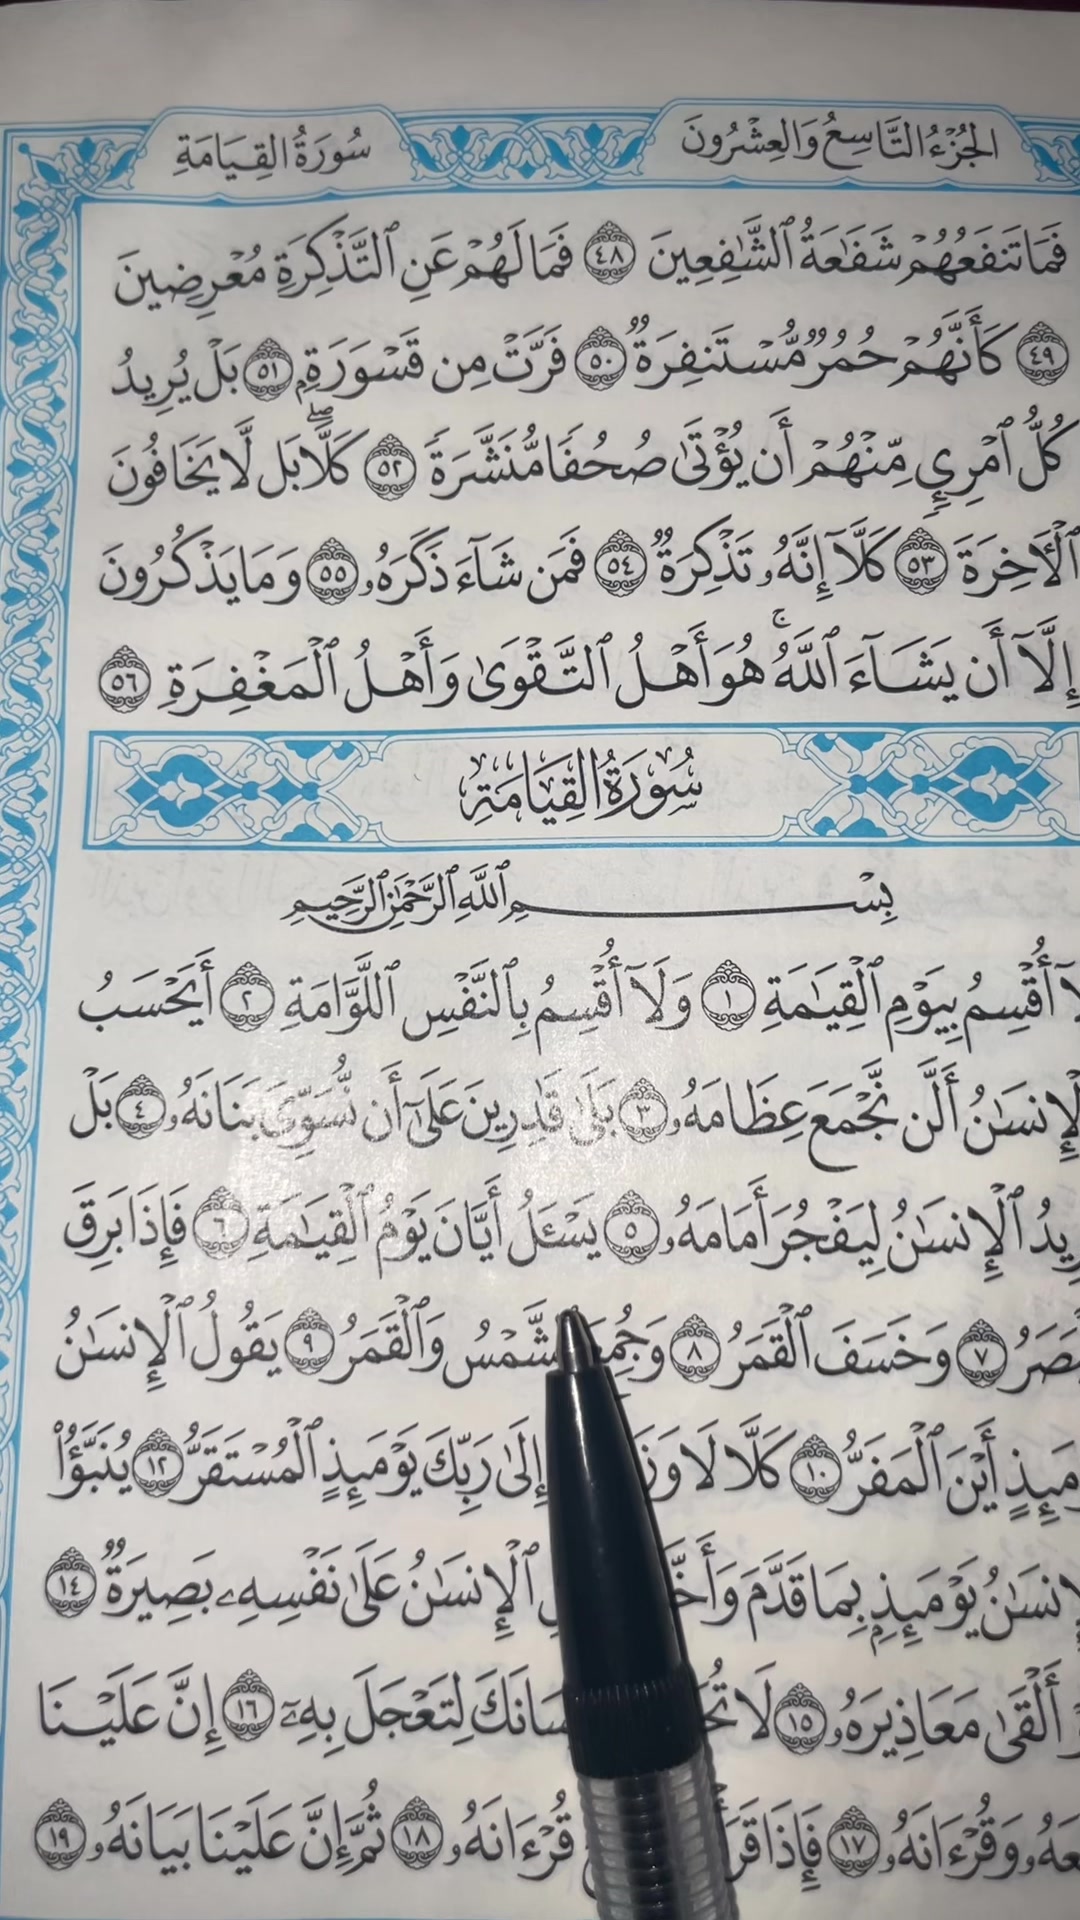 الجُزْءُ التَّاسِعُ وَالعِشْرُونَ
سُورَةُ القِيَامَةِ
فَمَا تَنفَعُهُمْ شَفَٰعَةُ ٱلشَّٰفِعِينَ ٤٨ فَمَا لَهُمْ عَنِ ٱلتَّذْكِرَةِ مُعْرِضِينَ
٤٩ كَأَنَّهُمْ حُمُرٌ مُّسْتَنفِرَةٌ ٥٠ فَرَّتْ مِن قَسْوَرَةِۭ ٥١ بَلْ يُرِيدُ
كُلُّ ٱمْرِئٍ مِّنْهُمْ أَن يُؤْتَىٰ صُحُفًا مُّنَشَّرَةً ٥٢ كَلَّاۖ بَل لَّا يَخَافُونَ
ٱلْأٓخِرَةَ ٥٣ كَلَّآ إِنَّهُۥ تَذْكِرَةٌ ٥٤ فَمَن شَآءَ ذَكَرَهُۥ ٥٥ وَمَا يَذْكُرُونَ
إِلَّآ أَن يَشَآءَ ٱللَّهُۚ هُوَ أَهْلُ ٱلتَّقْوَىٰ وَأَهْلُ ٱلْمَغْفِرَةِ ٥٦
سُورَةُ القِيَامَةِ
بِسْمِ ٱللَّهِ ٱلرَّحْمَٰنِ ٱلرَّحِيمِ
أُقْسِمُ بِيَوْمِ ٱلْقِيَٰمَةِ ١ وَلَآ أُقْسِمُ بِٱلنَّفْسِ ٱللَّوَّامَةِ ٢ أَيَحْسَبُ
ٱلْإِنسَٰنُ أَلَّن نَّجْمَعَ عِظَامَهُۥ ٣ بَلَىٰ قَٰدِرِينَ عَلَىٰٓ أَن نُّسَوِّىَ بَنَانَهُۥ ٤ بَلْ
ٱلْإِنسَٰنُ لِيَفْجُرَ أَمَامَهُۥ ٥ يَسْـَٔلُ أَيَّانَ يَوْمُ ٱلْقِيَٰمَةِ ٦ فَإِذَا بَرِقَ
٧ وَخَسَفَ ٱلْقَمَرُ ٨ وَجُمِعَ ٱلشَّمْسُ وَٱلْقَمَرُ ٩ يَقُولُ ٱلْإِنسَٰنُ
أَيْنَ ٱلْمَفَرُّ ١٠ كَلَّا لَا إِلَىٰ رَبِّكَ يَوْمَئِذٍ ٱلْمُسْتَقَرُّ ١٢ يُنَبَّؤُا۟
ٱلْإِنسَٰنُ يَوْمَئِذٍۭ بِمَا قَدَّمَ ٱلْإِنسَٰنُ عَلَىٰ نَفْسِهِۦ بَصِيرَةٌ ١٤
أَلْقَىٰ مَعَاذِيرَهُۥ ١٥ لَا لِتَعْجَلَ بِهِۦٓ ١٦ إِنَّ عَلَيْنَا
وَقُرْءَانَهُۥ ١٧ فَإِذَا قُرْءَانَهُۥ ١٨ ثُمَّ إِنَّ عَلَيْنَا بَيَانَهُۥ ١٩